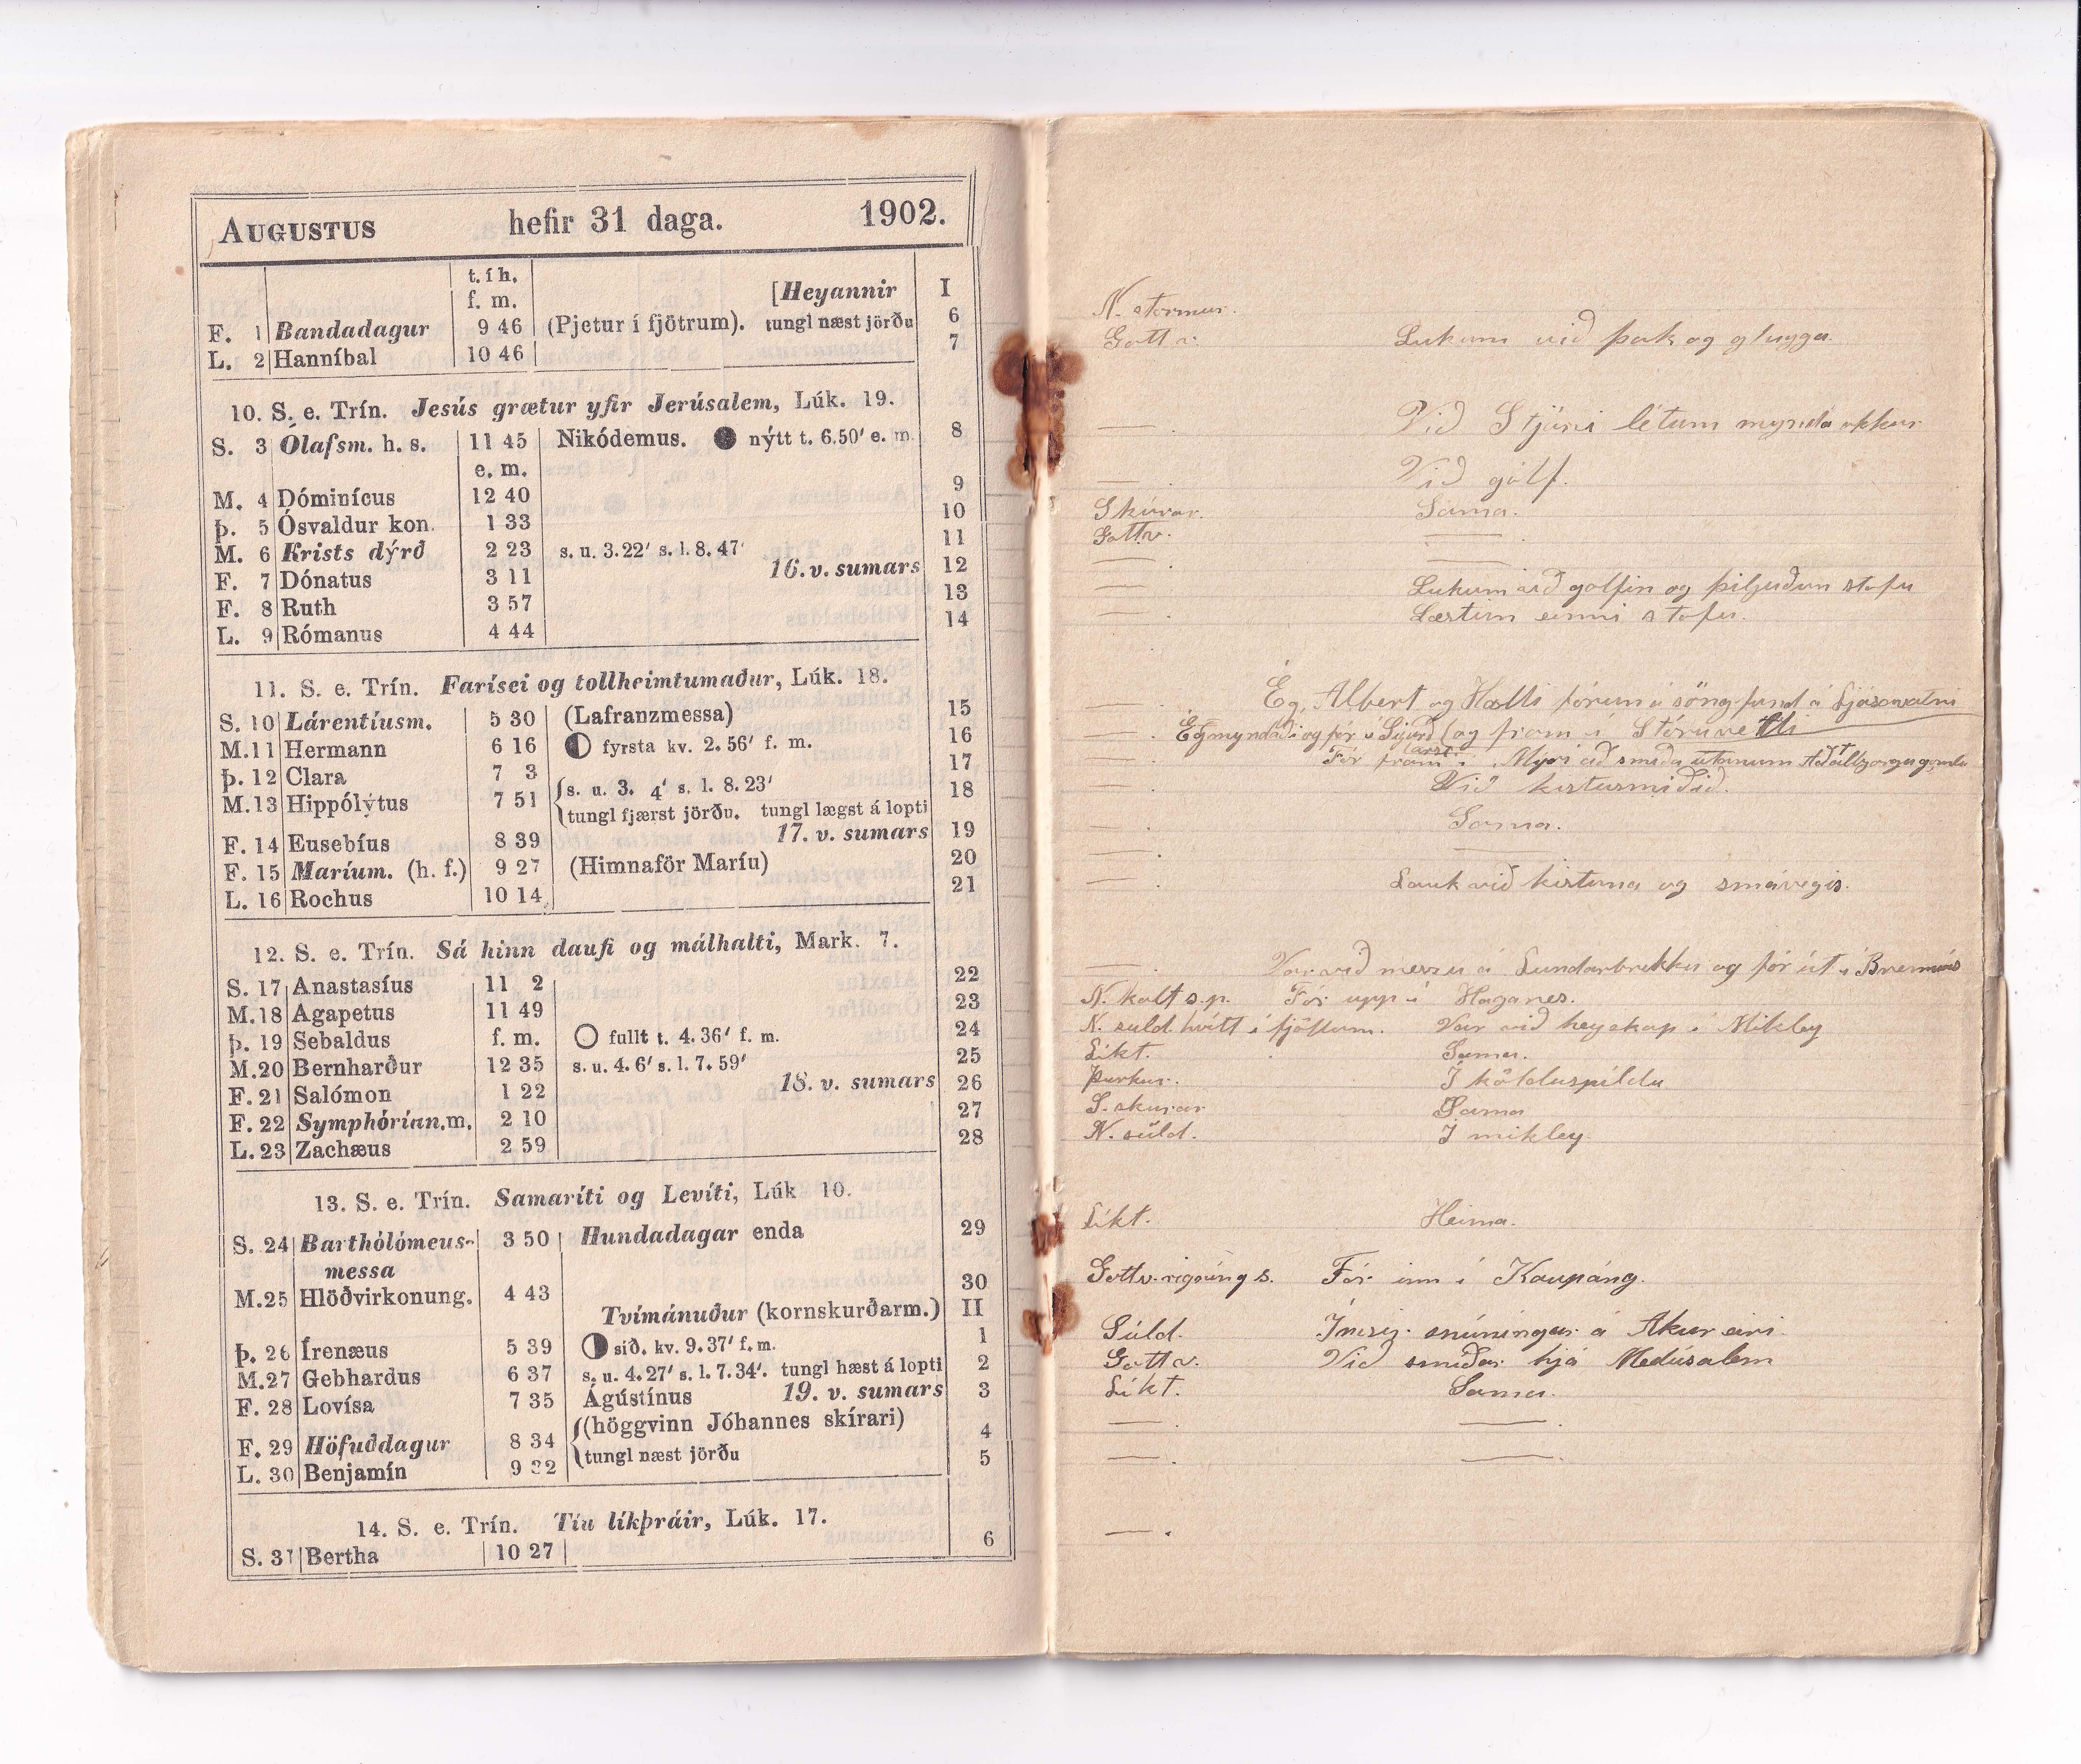 AUGUSTUS hefir 31 daga. 1902.
t. í h. [Heyannir I
f. m.
F. 1 Bandadagur 9 46 (Pjetur í fjötrum). tungl næst jörðu 6
L. 2 Hanníbal 10 46 7
10. S. e. Trín. Jesús grætur yfir Jerúsalem, Lúk. 19.
S. 3 Ólafsm. h. s. 11 45 Nikódemus. nýtt t. 6.50′ e. m. 8
e. m.
M. 4 Dóminícus 12 40 9
Þ. 5 Ósvaldur kon. 1 33 10
M. 6 Krists dýrð 2 23 s. u. 3.22′ s. l. 8. 47′ 11
F. 7 Dónatus 3 11 16. v. sumars 12
F. 8 Ruth 3 57 13
L. 9 Rómanus 4 44 14
11. S. e. Trín. Farísei og tollheimtumaður, Lúk. 18.
S. 10 Lárentíusm. 5 30 (Lafranzmessa) 15
M. 11 Hermann 6 16 fyrsta kv. 2. 56′ f. m. 16
Þ. 12 Clara 7 3 17
M. 13 Hippólýtus 7 51 s. u. 3. 4′ s. l. 8. 23′ 18
tungl fjærst jörðu. tungl lægst á lopti
F. 14 Eusebíus 8 39 17. v. sumars 19
F. 15 Maríum. (h. f.) 9 27 (Himnaför Maríu) 20
L. 16 Rochus 10 14 21
12. S. e. Trín. Sá hinn daufi og málhalti, Mark. 7.
S. 17 Anastasíus 11 2 22
M. 18 Agapetus 11 49 23
Þ. 19 Sebaldus f. m. fullt t. 4. 36′ f. m. 24
M. 20 Bernharður 12 35 s. u. 4. 6′ s. l. 7. 59′ 25
F. 21 Salómon 1 22 18. v. sumars 26
F. 22 Symphórían. m. 2 10 27
L. 23 Zachæus 2 59 28
13. S. e. Trín. Samaríti og Levíti, Lúk 10.
S. 24 Barthólómeus- 3 50 Hundadagar enda 29
messa
M. 25 Hlöðvir konung. 4 43 30
Tvímánuður (kornskurðarm.) II
Þ. 26 Írenæus 5 39 síð. kv. 9. 37′ f. m. 1
M. 27 Gebhardus 6 37 s. u. 4. 27′ s. l. 7. 34′. tungl hæst á lopti 2
F. 28 Lovísa 7 35 Ágústínus 19. v. sumars 3
(höggvinn Jóhannes skírari)
F. 29 Höfuðdagur 8 34 4
tungl næst jörðu
L. 30 Benjamín 9 32 5
14. S. e. Trín. Tíu líkþráir, Lúk. 17.
S. 31 Bertha 10 27 6
N. stormur.
Gott v. Lukum við þak og glugga.
— . Við Stjáni létum mynda okkur
— . Við gólf.
Skúrar. Sama.
Gott v. — .
— . —
— . Lukum við gólfin og þiljuðum stofu
— . Læstum einni stofu.
Ég, Albert og Halli fórum á söngfund á Ljósavatni
— . Ég og fór í (og fram í Stóruvelli
— . Fór fram í Mýri að smíða utanum
— . Við kistusmíðið.
— . Sama.
— . —
— . Lauk við kistuna og smávegis.
— . Var við messu á Lundarbrekku og fór út í
N. kalt s.p. Fór upp í Haganes.
N. suld. hvítt í fjöllum. Var við heyskap í Mikley
Líkt. Sama.
Þurkur. Í
S. skúrar Sama
N. súld. Í mikley
Líkt. Heima.
Gott v. s. Fór inn í Kaupáng.
Súld. snúningar á Akureiri.
Gott v. Við smíðar hjá Medúsalem
Líkt. Sama.
— . — .
— . — .
— .